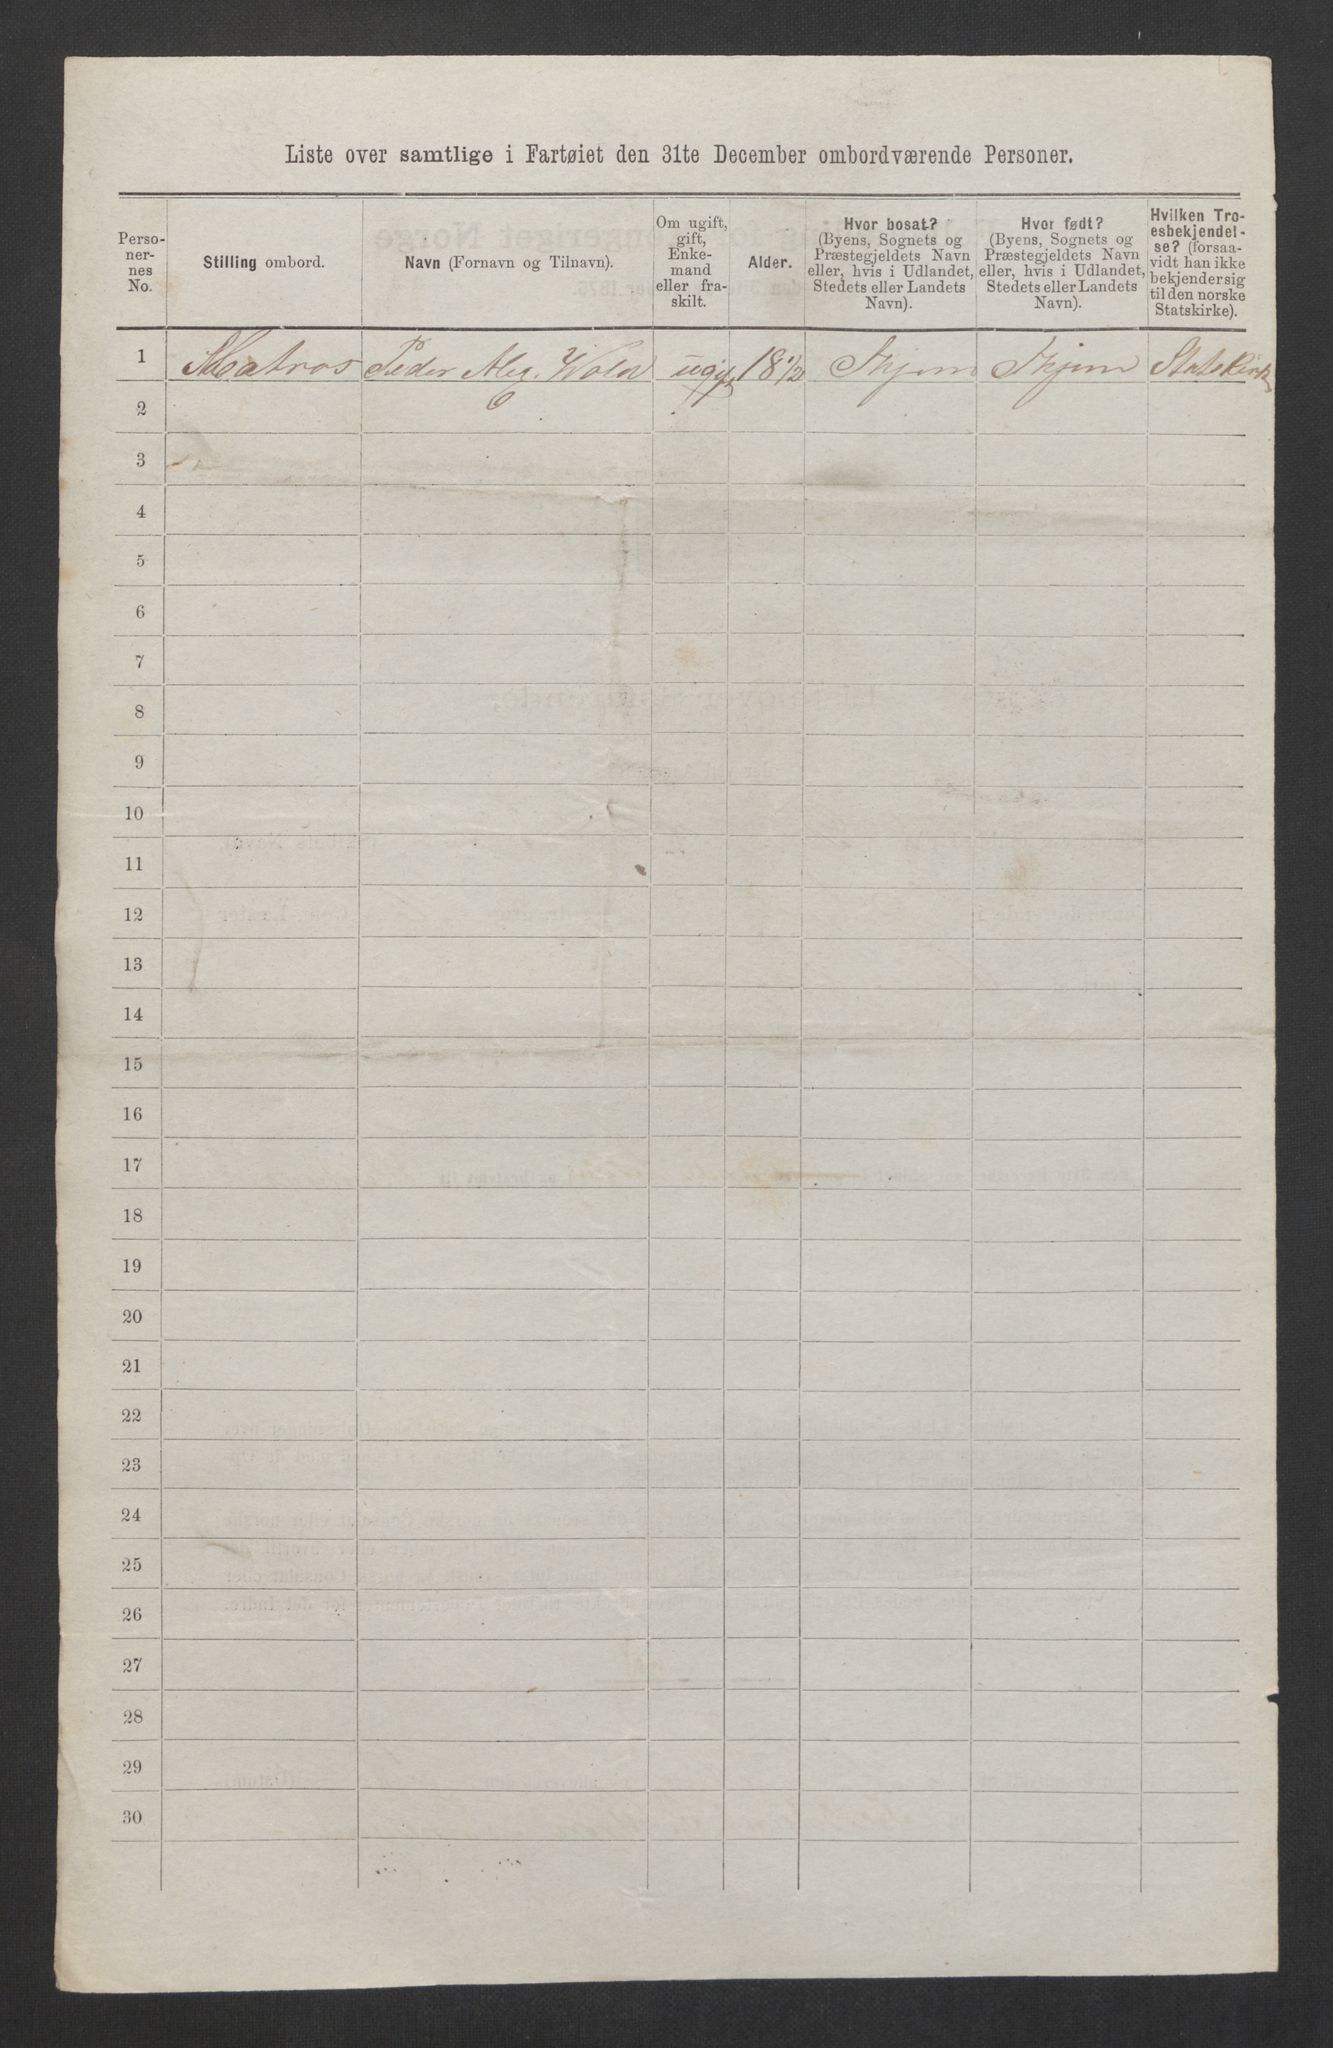 Liste over samtlige i Fartøiet den 31te December ombordværende Personer.
Perso-
ner-
nes
No.
Stilling ombord.
Navn (Fornavn og Tilnavn).
Om ugift,
gift,
Enke-
mand
eller fra-
skilt.
Alder.
Hvor bosat?
(Byens, Sognets og
Præstegjeldets Navn
eller, hvis i Udlandet,
Stedets eller Landets
Navn).
Hvor født?
(Byens, Sognets og
Præstegjeldets Navn
eller, hvis i Udlandet,
Stedets eller Landets
Navn).
Hvilken Tro-
esbekjendel-
se? (forsaa-
vidt han ikke
bekjender sig
til den norske
Statskirke).
1 Matros Peder Alex. Wold ugift 18 1/2 Skjem Skjem Statskirk
2
3
4
5
6
7
8
9
10
11
12
13
14
15
16
17
18
19
20
21
22
23
24
25
26
27
28
29
30